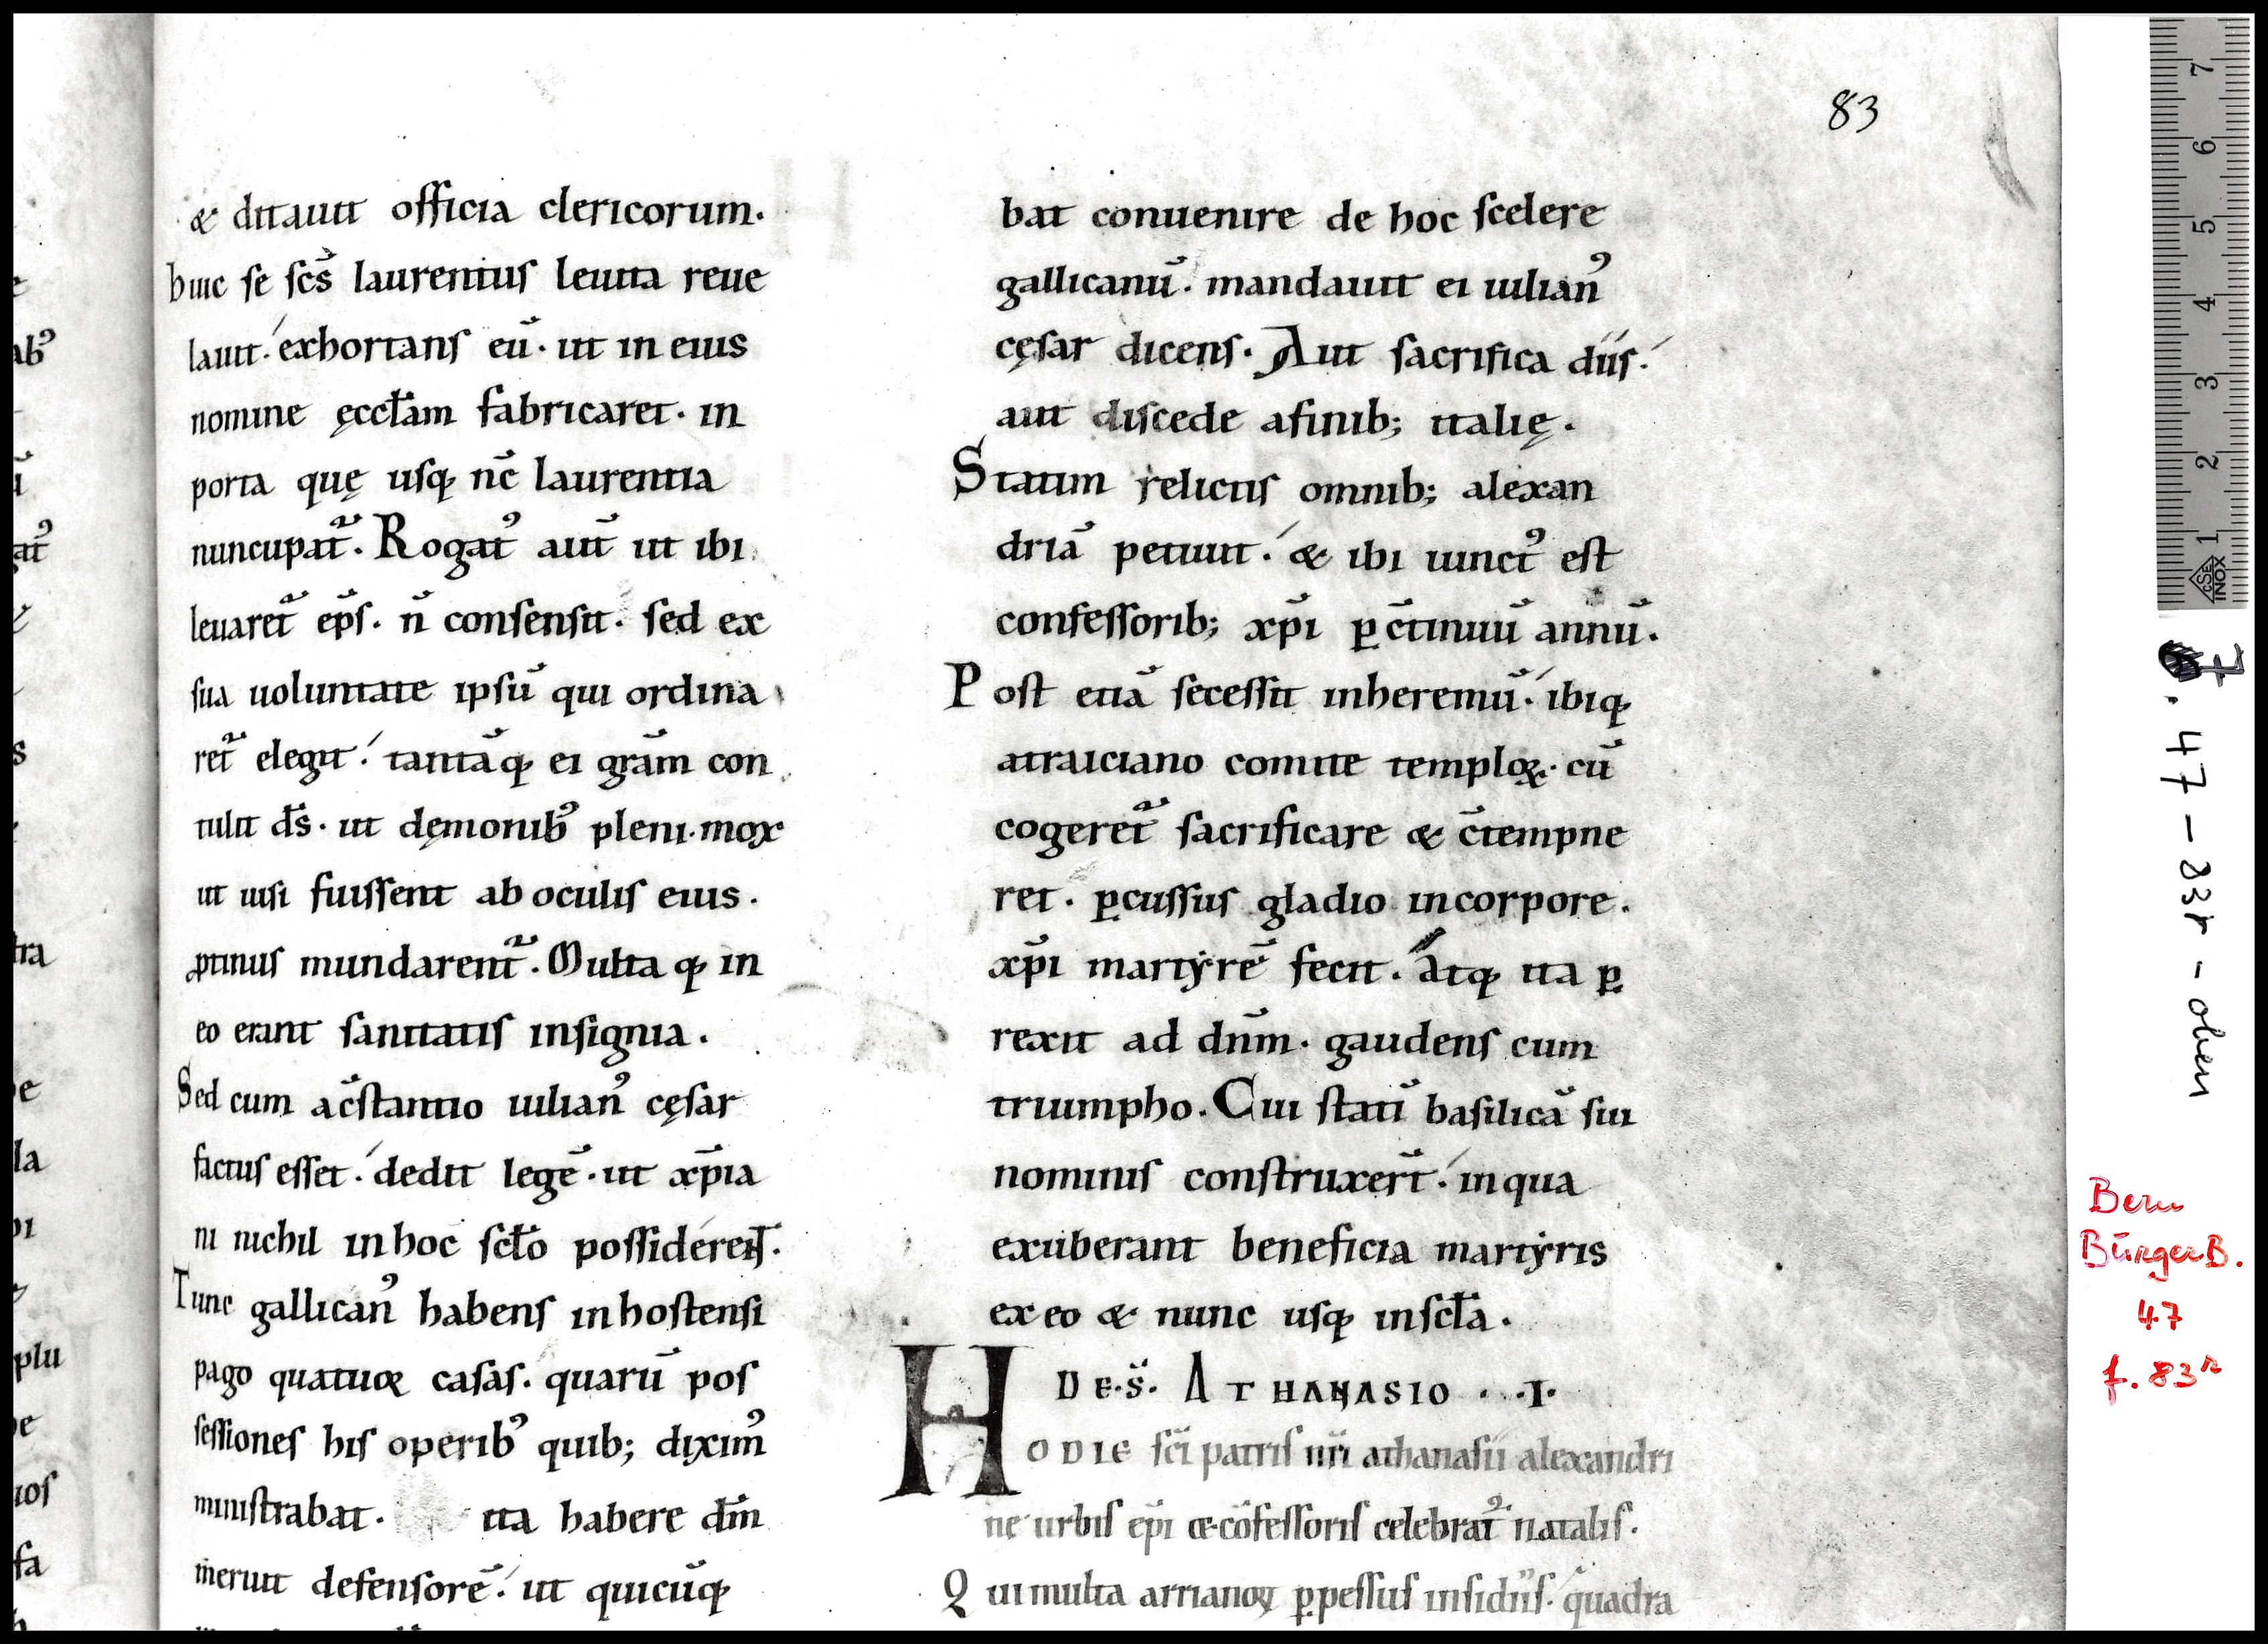 83
& ditauit officia clericorum.
huic se scs̄ laurentius leuita reue
lauit. exhortans eū. ut in eius
nomine ęccl̄am fabricaret. in
porta quę usq; nc̄ laurentia
nuncupat᷑. Rogatꝰ aut̄ ut ibi
leuaret᷑ ep̄s. n̄ consensit. sed ex
sua uoluntate ipsū qui ordina
ret᷑ elegit. tantāq; ei grām con
tulit ds̄. ut dęmonibꝰ pleni. mox
ut uisi fuissent ab oculis eius.
ꝓtinus mundarent᷑. Multa q; in
eo erant sanitatis insignia.
Sed cum ac̄stantio iulianꝰ cęsar
factus esset. dedit legē. ut xp̄ia
ni nichil inhoc scl̄o possiderent.
Tunc gallicanꝰ habens inhostensi
pago quatuor casas. quarū pos
sessiones his operibꝰ quib; diximꝰ
ministrabat. ita habere dm̄
meruit defensorē. ut quicūq;
bat conuenire de hoc scelere
gallicanū. mandauit ei iulianꝰ
cęsar dicens. Aut sacrifica diis.
aut discede afinib; italię.
Statim relictis omnib; alexan
driā petiuit. & ibi iunctꝰ est
confessorib; xp̄i ꝑ c̄tinuū annū.
Post etiā secessit inheremū. ibiq;
atraiciano comite temploꝝ. cū
cogeret᷑ sacrificare & c̄tempne
ret. ꝑcussus gladio incorpore.
xp̄i martẏrē fecit. atq; ita ꝑ
rexit ad dn̄m. gaudens cum
triumpho. Cui stati basilicā sui
nominis construxer̄t. inqua
exuberant beneficia martẏris
ex eo & nunc usq; inscl̄a.
DE. S̄. ATHANASIO. .I.
HODIE sc̄i patris nr̄i athanasii alexandri
nę urbis ep̄i & cōfessoris celebrat᷑ natalis.
Qui multa arrianoꝝ ꝑpessus insidiis. quadra
ab᷒
s
la
plu
fa
7
6
5
4
3
2
1
CSE
INOX
47 - 83r - oben
Bern
BürgerB.
47
f. 83r